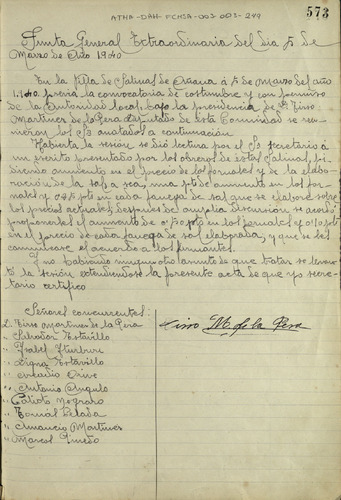 ATHA-DAH-FCHSA-003-003-249
573
Junta General Extraordinaria del dia 5 de
Marzo de Año 1940
En la Villa de Salinas de Añana á 5 de Marzo del año
1.940. previa la convocatoria de costumbre y con permiso
de la Autoridad local, bajo la presidencia de D. Tirso
Martinez de la Pera Diputado de esta Comunidad se reu-
nieron los Srs anotados a continuación
Habierta la sesión se dió lectura por el Sr secretario á
un escrito presentado por los obreros de estas Salinas, pi-
diendo aumento en el precio de los jornales y de la elabo-
ración de la sal, o sea, una pta de aumento en los jor-
nales y en cada fanega de sal que se elabore sobre
los precios actuales, despues de amplia discursión se acordó
proponerles el aumento de 0'50 pts en los jornales y 0'10 pts
en el precio de cada fanega de sal elaborada, y que se les
comunicare el acuerdo a los firmantes.
Y no habiendo ningun otro asunto de que tratar se levan-
tó la sesión, extendiendose la presente acta de que yo secre-
tario certifico
Señores concurrentes:
D. Tirso Martinez de la Pera
" Salvador Ortavillo
" Isabel Iturburu
" Ortavillo
" Arcadio
" Antonio Angulo
" Calisto Nograro
" Tomás Pelada
" Amancio Martinez
" Marcos
Tirso M. de la Pera